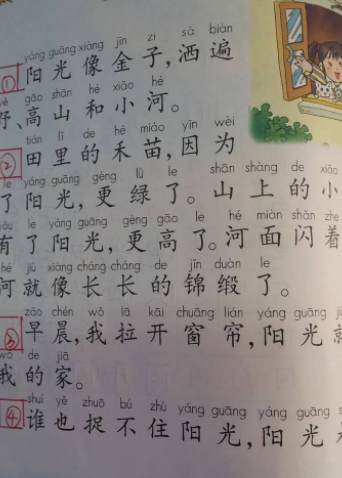 yáng guāng xiàng jīn zi sǎ biàn
① 阳光像金子,洒遍
yě gāo shān hé xiǎo hé
野、高山和小河。
tián lǐ de hé miáo yīn wèi
② 田里的禾苗,因为
le yáng guāng gèng lǜ le shān shàng de xiǎo
了阳光,更绿了。山上的小
yǒu le yáng guāng gèng gāo le hé miàn shǎn zhe
有了阳光,更高了。河面闪着
hé jiù xiàng cháng cháng de jǐn duàn le
河就像长长的锦缎了。
zǎo chén wǒ lā kāi chuāng lián yáng guāng
③ 早晨,我拉开窗帘,阳光就
wǒ de jiā
我的家。
shuí yě zhuō bú zhù yáng guāng yáng guāng
④ 谁也捉不住阳光,阳光